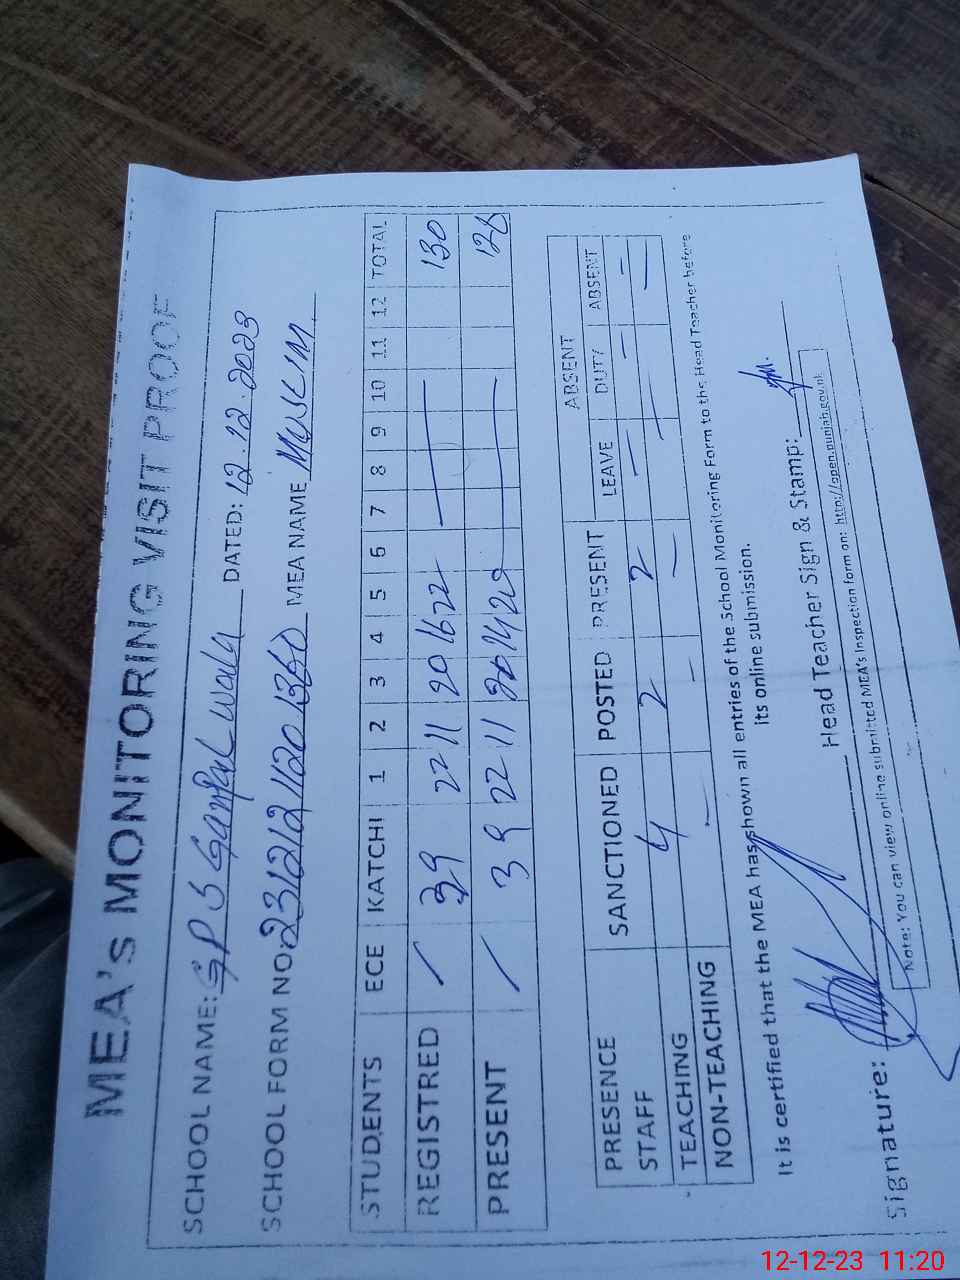 MEA's MONITORING VISIT PROOF
SCHOOL NAME: GPS Ganpal wala DATED: 12.12.2023
SCHOOL FORM NO: MEA NAME MUSLIM.
STUDENTS ECE KATCHI 1 2 3 4 5 6 7 8 9 10 11 12 TOTAL
REGISTRED / 39 22 11 20 16 22 — 130
PRESENT / 39 22 11 20 14 —
PRESENCE SANCTIONED POSTED PRESENT ABSENT
STAFF LEAVE DUTY ABSENT
TEACHING 4 2 2 — — —
NON-TEACHING — — — — — —
It is certified that the MEA has shown all entries of the School Monitoring Form to the Head Teacher before
its online submission.
Signature: Head Teacher Sign & Stamp:
Note: You can view online submitted MEA's Inspection form on: http://open.punjab.gov.pk
12-12-23 11:20